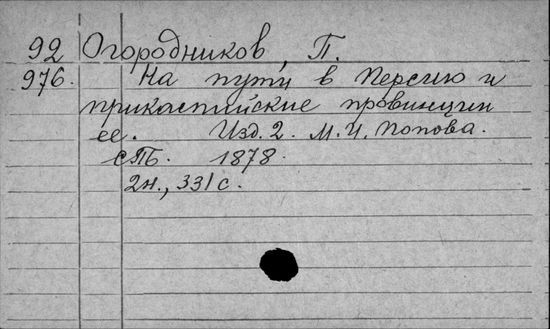 92 Огородников, П.
976. На пути в Персию и
прикаспийские провинции
ее. Изд. 2. М. И. Попова.
сПб. 1878.
2н., 331 с.